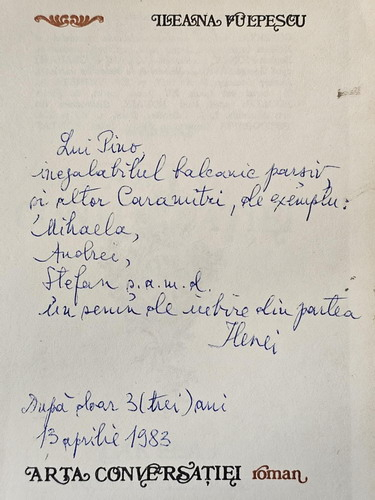 ILEANA VULPESCU
Lui Pino,
inegalabilul balcanic parsiv,
și altor Caramitri, de exemplu:
Mihaela,
Andrei,
Ștefan ș.a.m.d.
Un semn de iubire din partea
Ilenei
După doar 3 (trei) ani
13 aprilie 1983
ARTA CONVERSAȚIEI roman